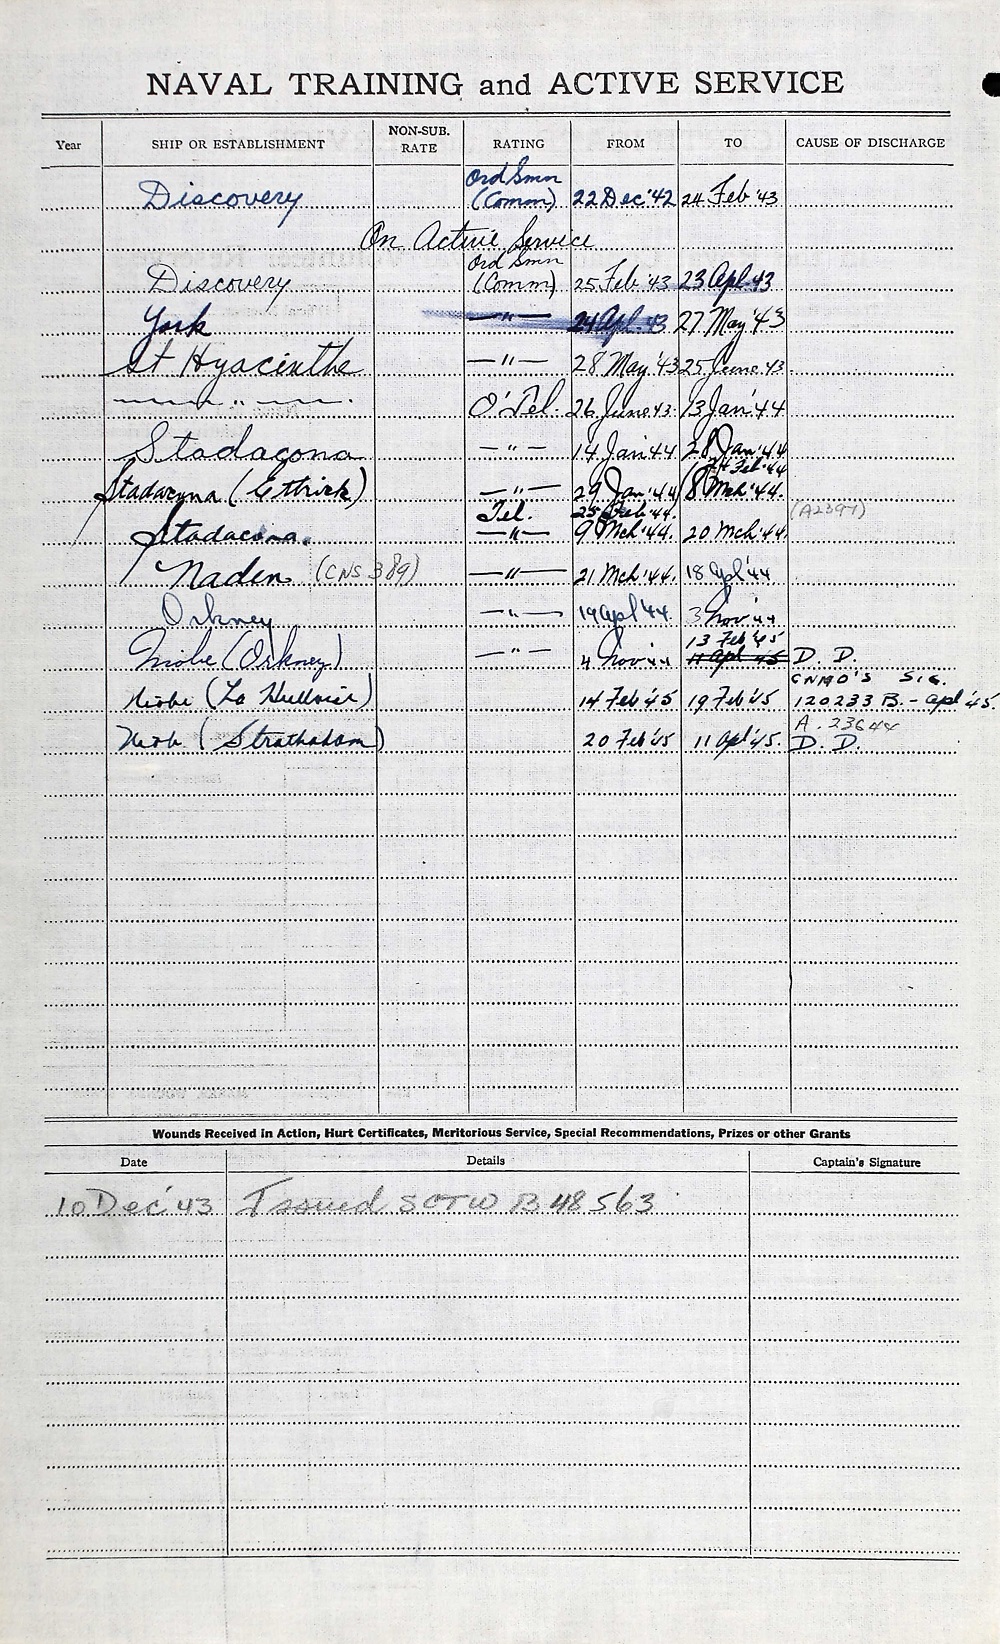 NAVAL TRAINING and ACTIVE SERVICE
Year SHIP OR ESTABLISHMENT NON-SUB. RATE RATING FROM TO CAUSE OF DISCHARGE
Discovery Ord Smn (Comm) 22 Dec '42 24 Feb '43
On Active Service
Discovery Ord Smn (Comm) 25 Feb '43 23 Apl. 43
York — " — 24 Apl. 43 27 May '43
St Hyacinthe — " — 28 May '43 25 June. 43
— " — O'Tel. 26 June 43. 13 Jan '44
Stadacona — " — 14 Jan '44 28 Jan '44
Stadacona (Ettrick) — " — 29 Jan '44 24 Feb '44
Tel. 25 Feb '44. (8 Mch '44. (A2397)
Stadacona. — " — 9 Mch '44. 20 Mch '44.
Naden (CNS 389) — " — 21 Mch '44. 18 Apl '44
Orkney — " — 19 Apl '44 3 Nov '44
Niobe (Orkney) — " — 4 Nov '44 13 Feb '45 11 Apl 45 D. D.
CNMO'S SIG.
Niobe (La Hulloise) 14 Feb '45 19 Feb '45 120233 B. - Apl '45.
A. 23644
Niob. (Strathadam) 20 Feb '45 11 Apl '45. D. D.
Wounds Received in Action, Hurt Certificates, Meritorious Service, Special Recommendations, Prizes or other Grants
Date Details Captain's Signature
10 Dec '43 Issued SCTW B 48563